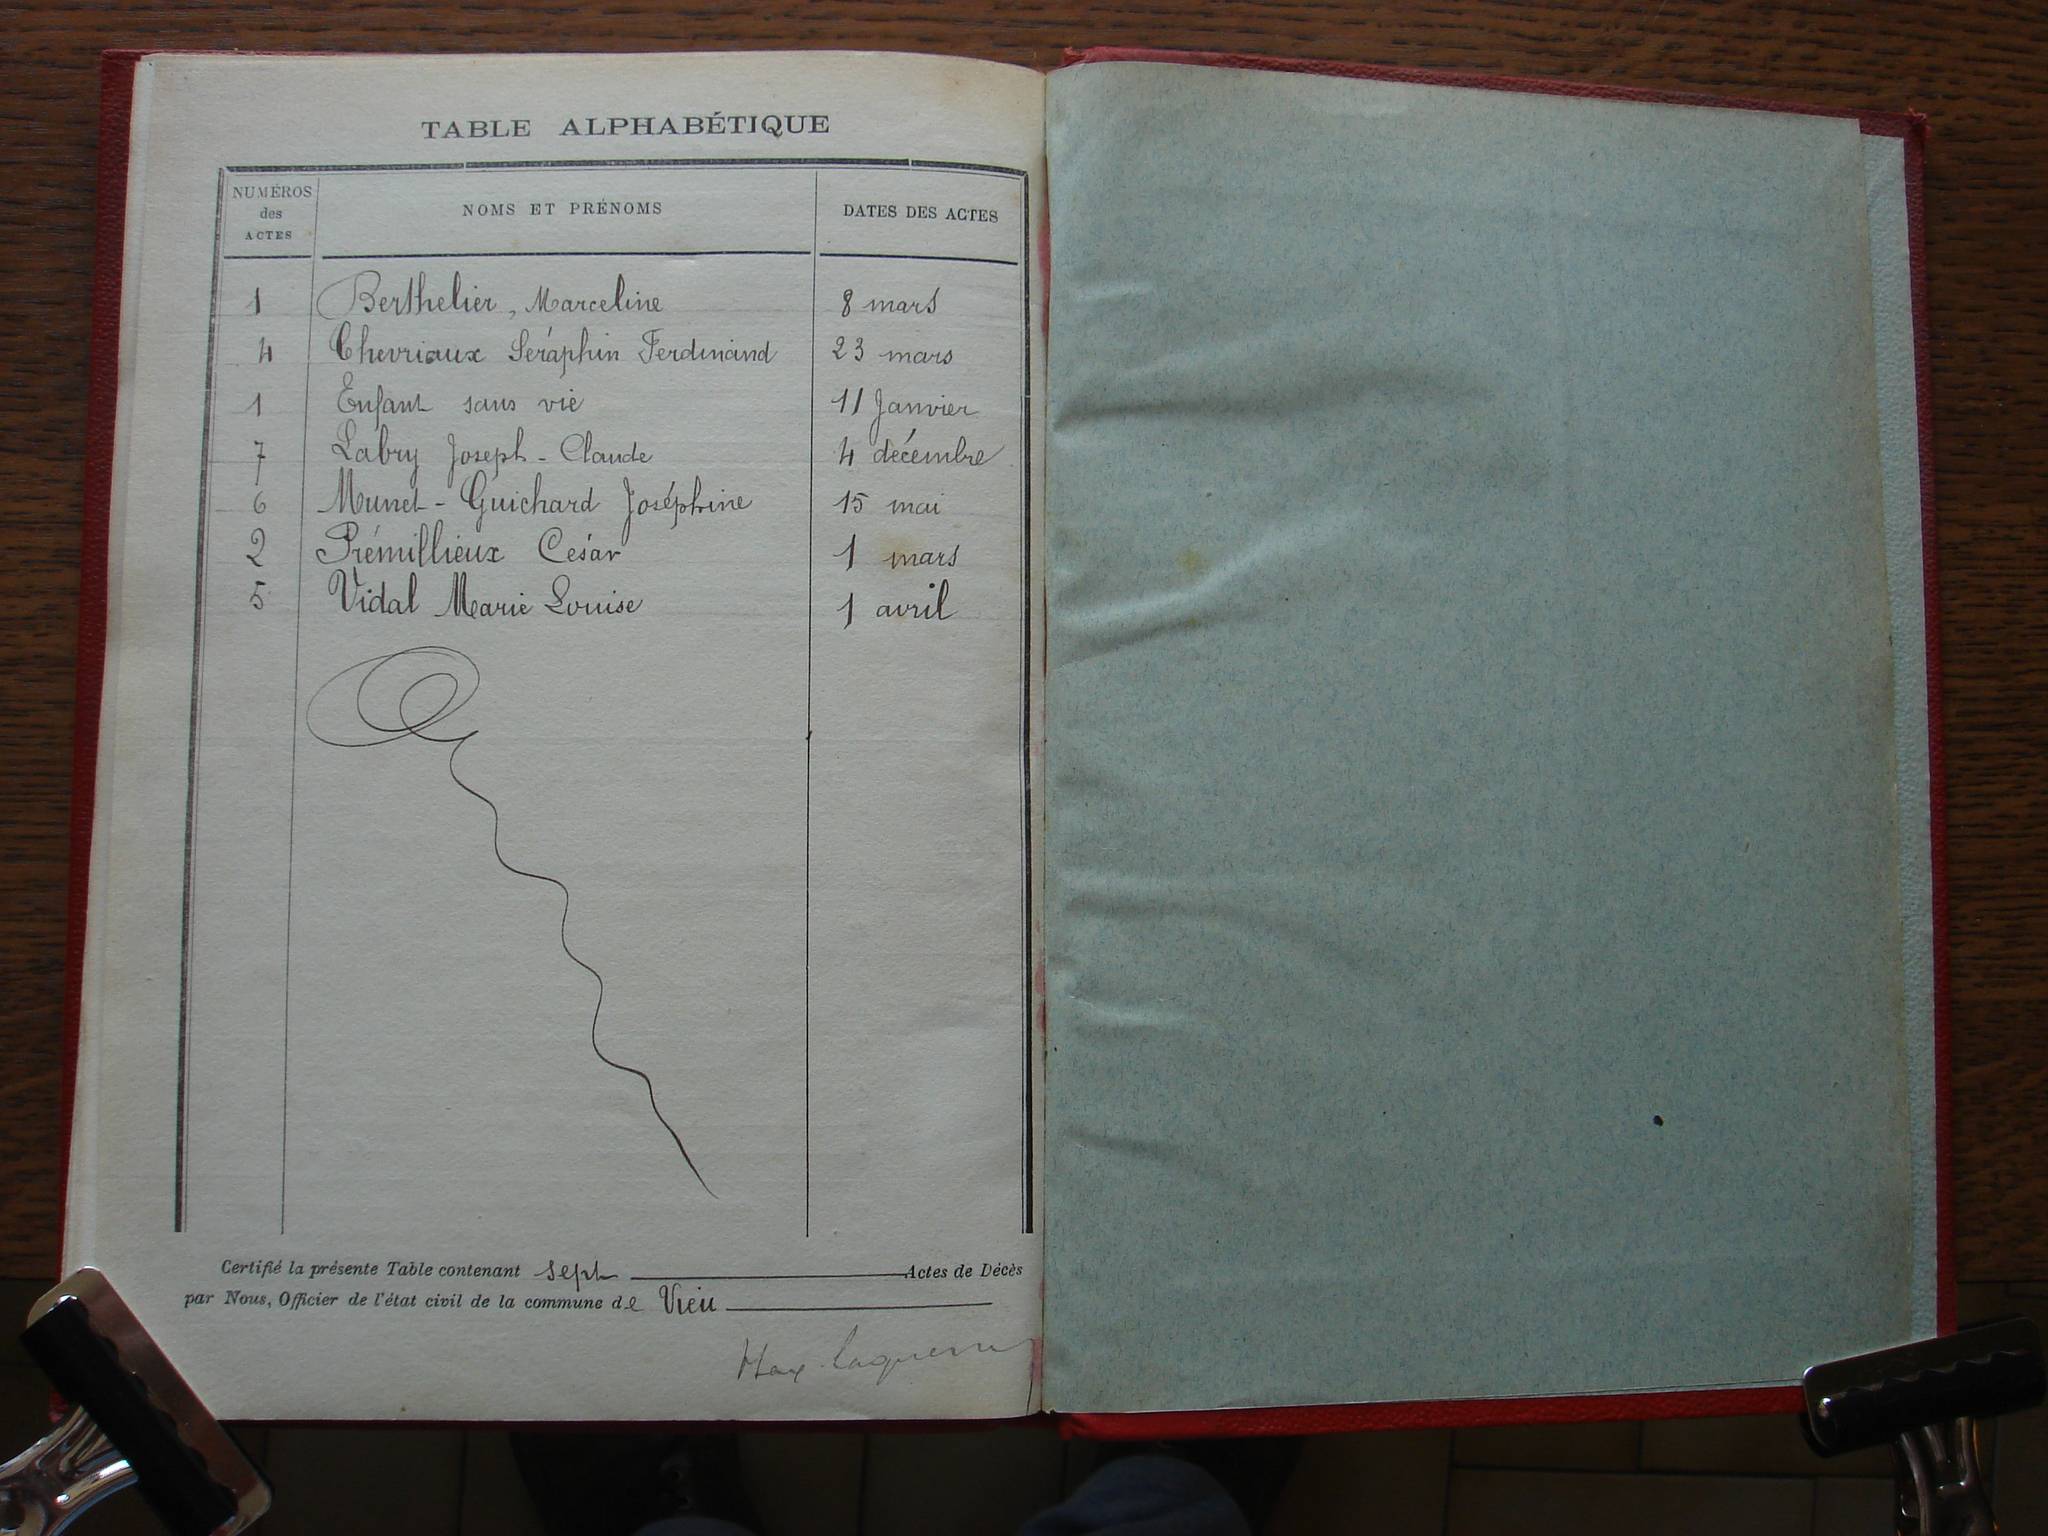 TABLE ALPHABÉTIQUE
NUMÉROS des ACTES NOMS ET PRÉNOMS DATES DES ACTES
1 Berthelier, Marceline 8 mars
4 Chevriaux Séraphin Ferdinand 23 mars
1 Enfant sans vie 11 Janvier
7 Labry Joseph-Claude 4 décembre
6 Munet-Guichard Joséphine 15 mai
2 Prémillieux César 1 mars
5 Vidal Marie Louise 1 avril
Certifié la présente Table contenant sept Actes de Décès
par Nous, Officier de l'état civil de la commune de Vieu